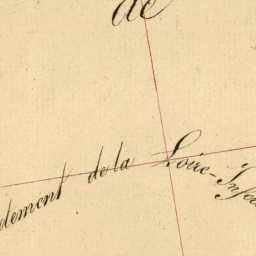 de
dement de la Loire-Infé